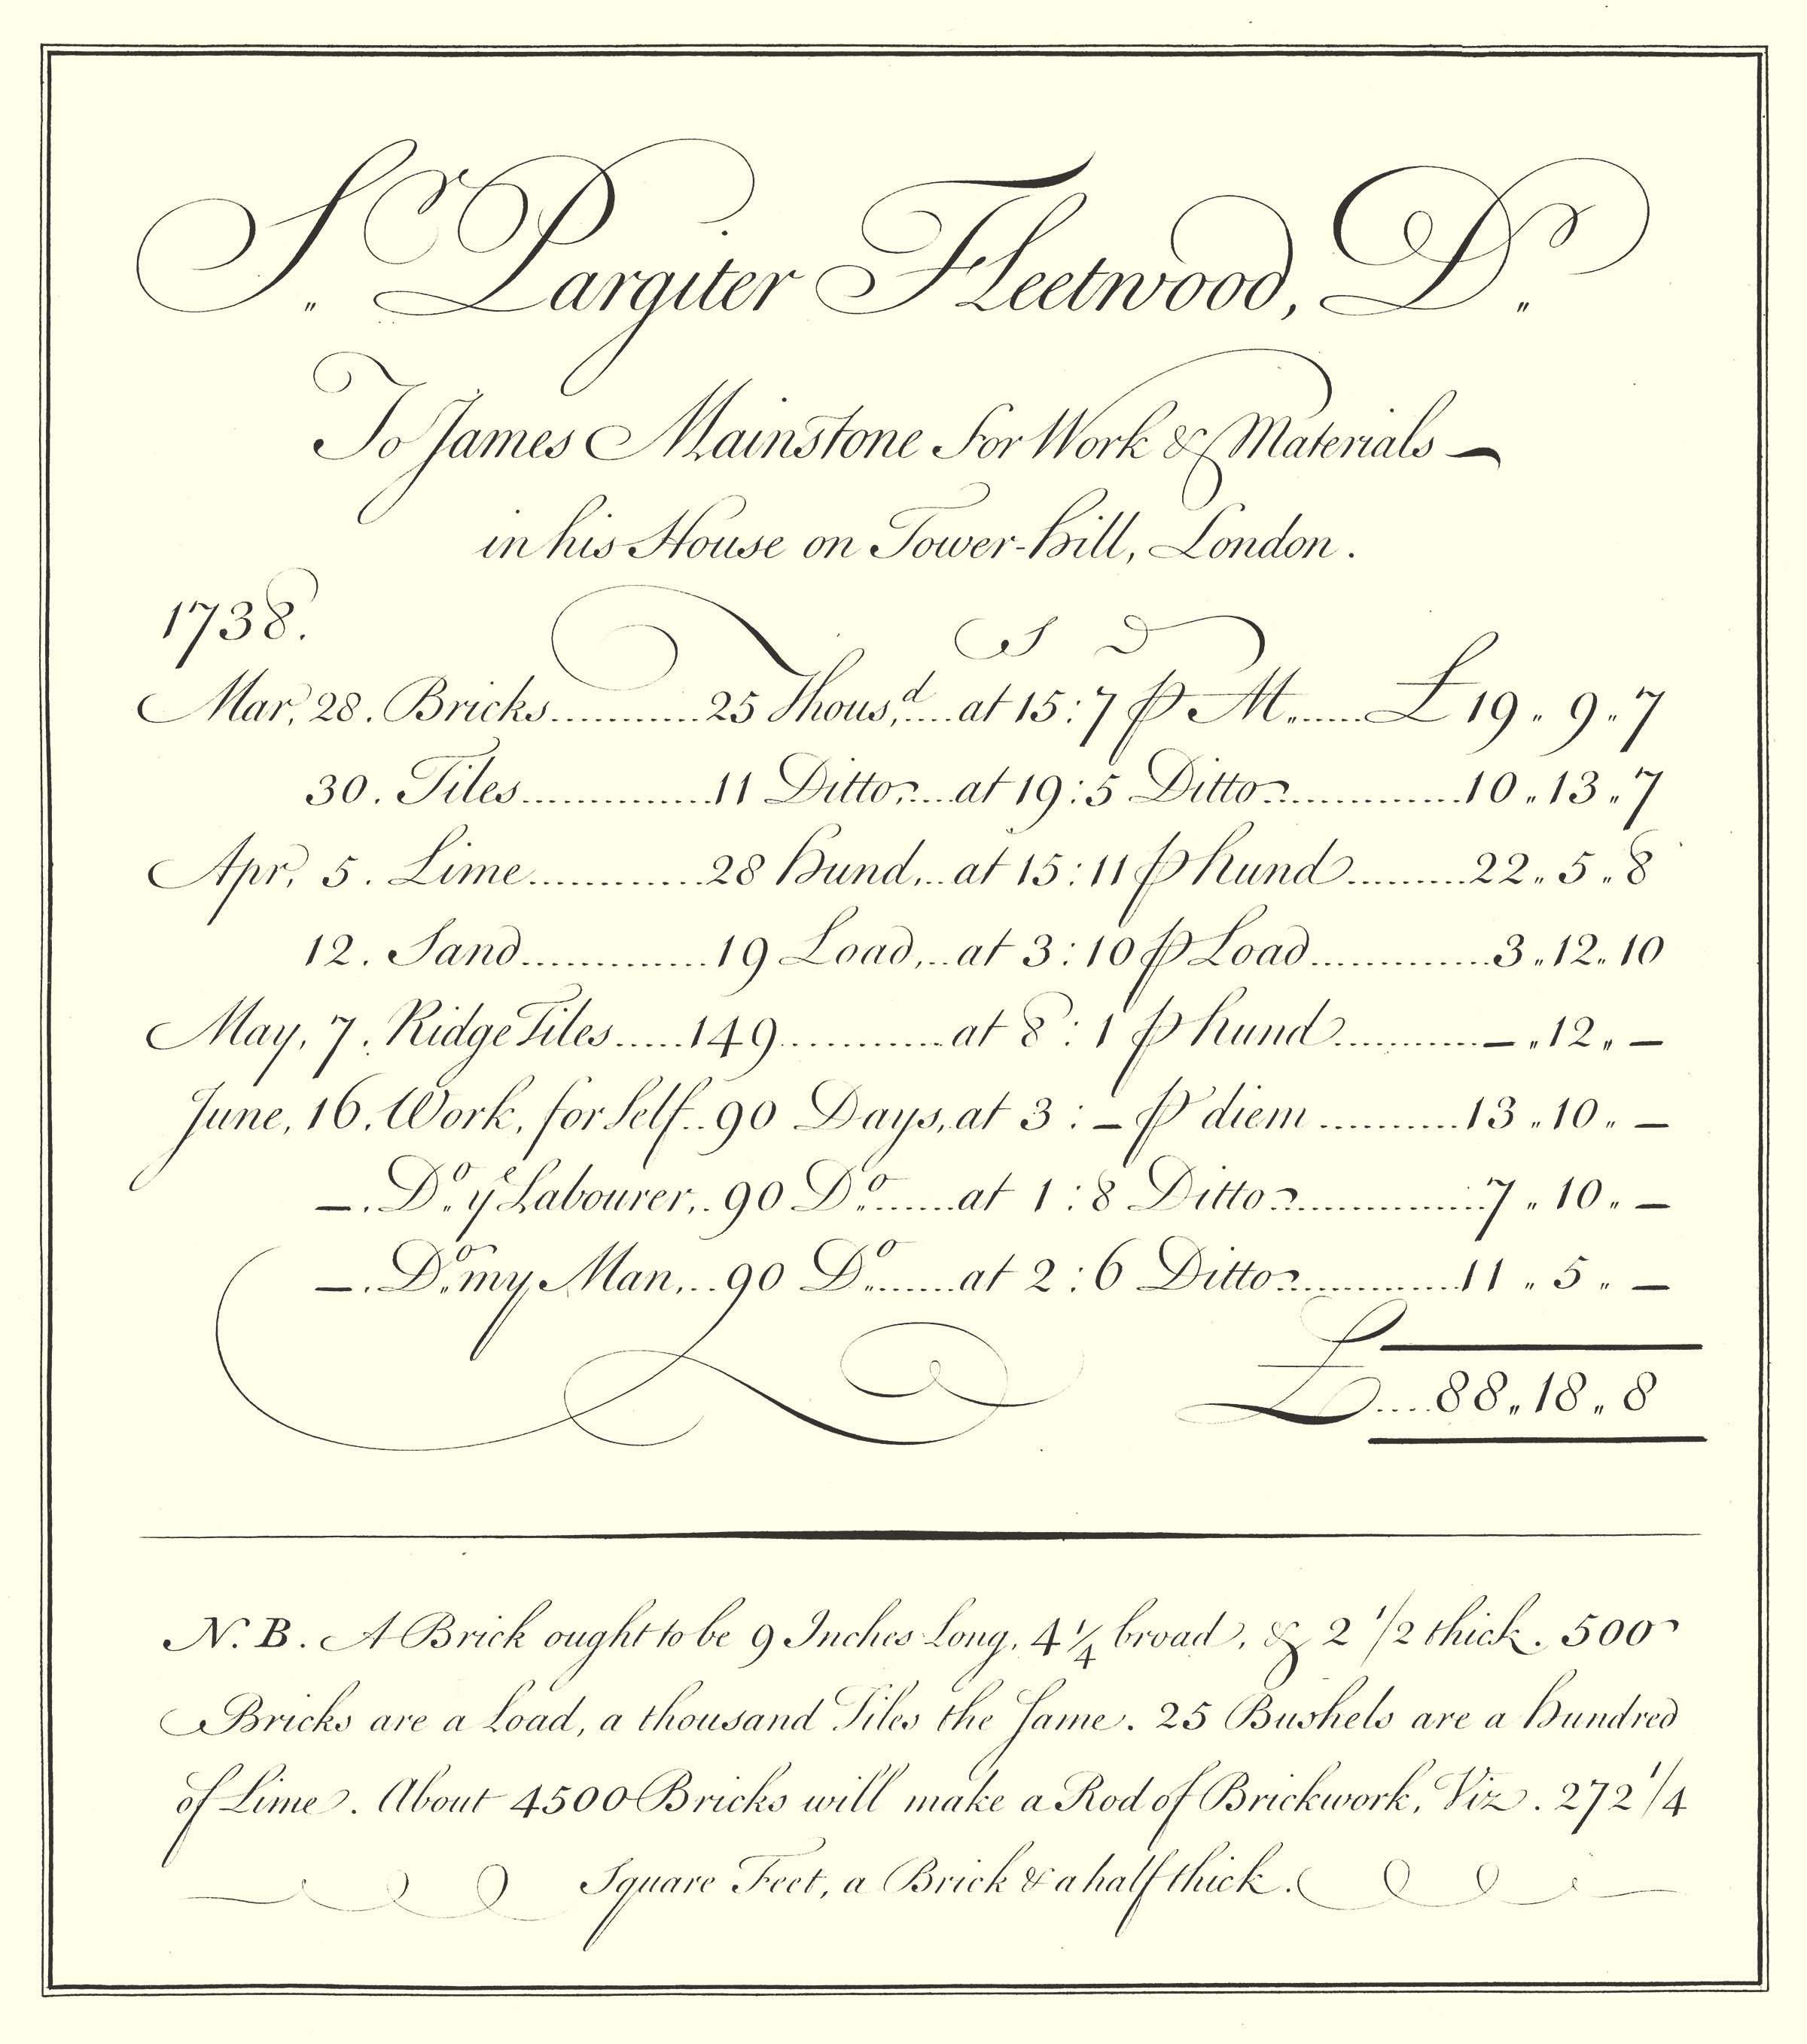 Sr. Pargiter Fleetwood, Dr.
To James Mainstone For Work & Materials —
in his House on Tower-hill, London.
1738. S D
Mar, 28. Bricks............25 Thous,d....at 15:7 ⅌ M.......£ 19 " 9 " 7
30. Tiles................11 Ditto,....at 19:5 Ditto................10 " 13 " 7
Apr, 5. Lime..............28 Hund,..at 15:11 ⅌ hund..........22 " 5 " 8
12. Sand................19 Load,..at 3:10 ⅌ Load...............3 " 12 " 10
May, 7. Ridge Tiles......149..............at 8:1 ⅌ hund.............— " 12 " —
June, 16. Work, for Self..90 Days, at 3:— ⅌ diem............13 " 10 " —
—. Do. ye Labourer,..90 Do.......at 1:8 Ditto................7 " 10 " —
—. Do. my Man,...90 Do.......at 2:6 Ditto..............11 " 5 " —
£....88 " 18 " 8
N. B. A Brick ought to be 9 Inches Long, 4 1/4 broad, & 2 1/2 thick. 500
Bricks are a Load, a thousand Tiles the Same. 25 Bushels are a Hundred
of Lime. About 4500 Bricks will make a Rod of Brickwork, Viz. 272 1/4
Square Feet, a Brick & a half thick.